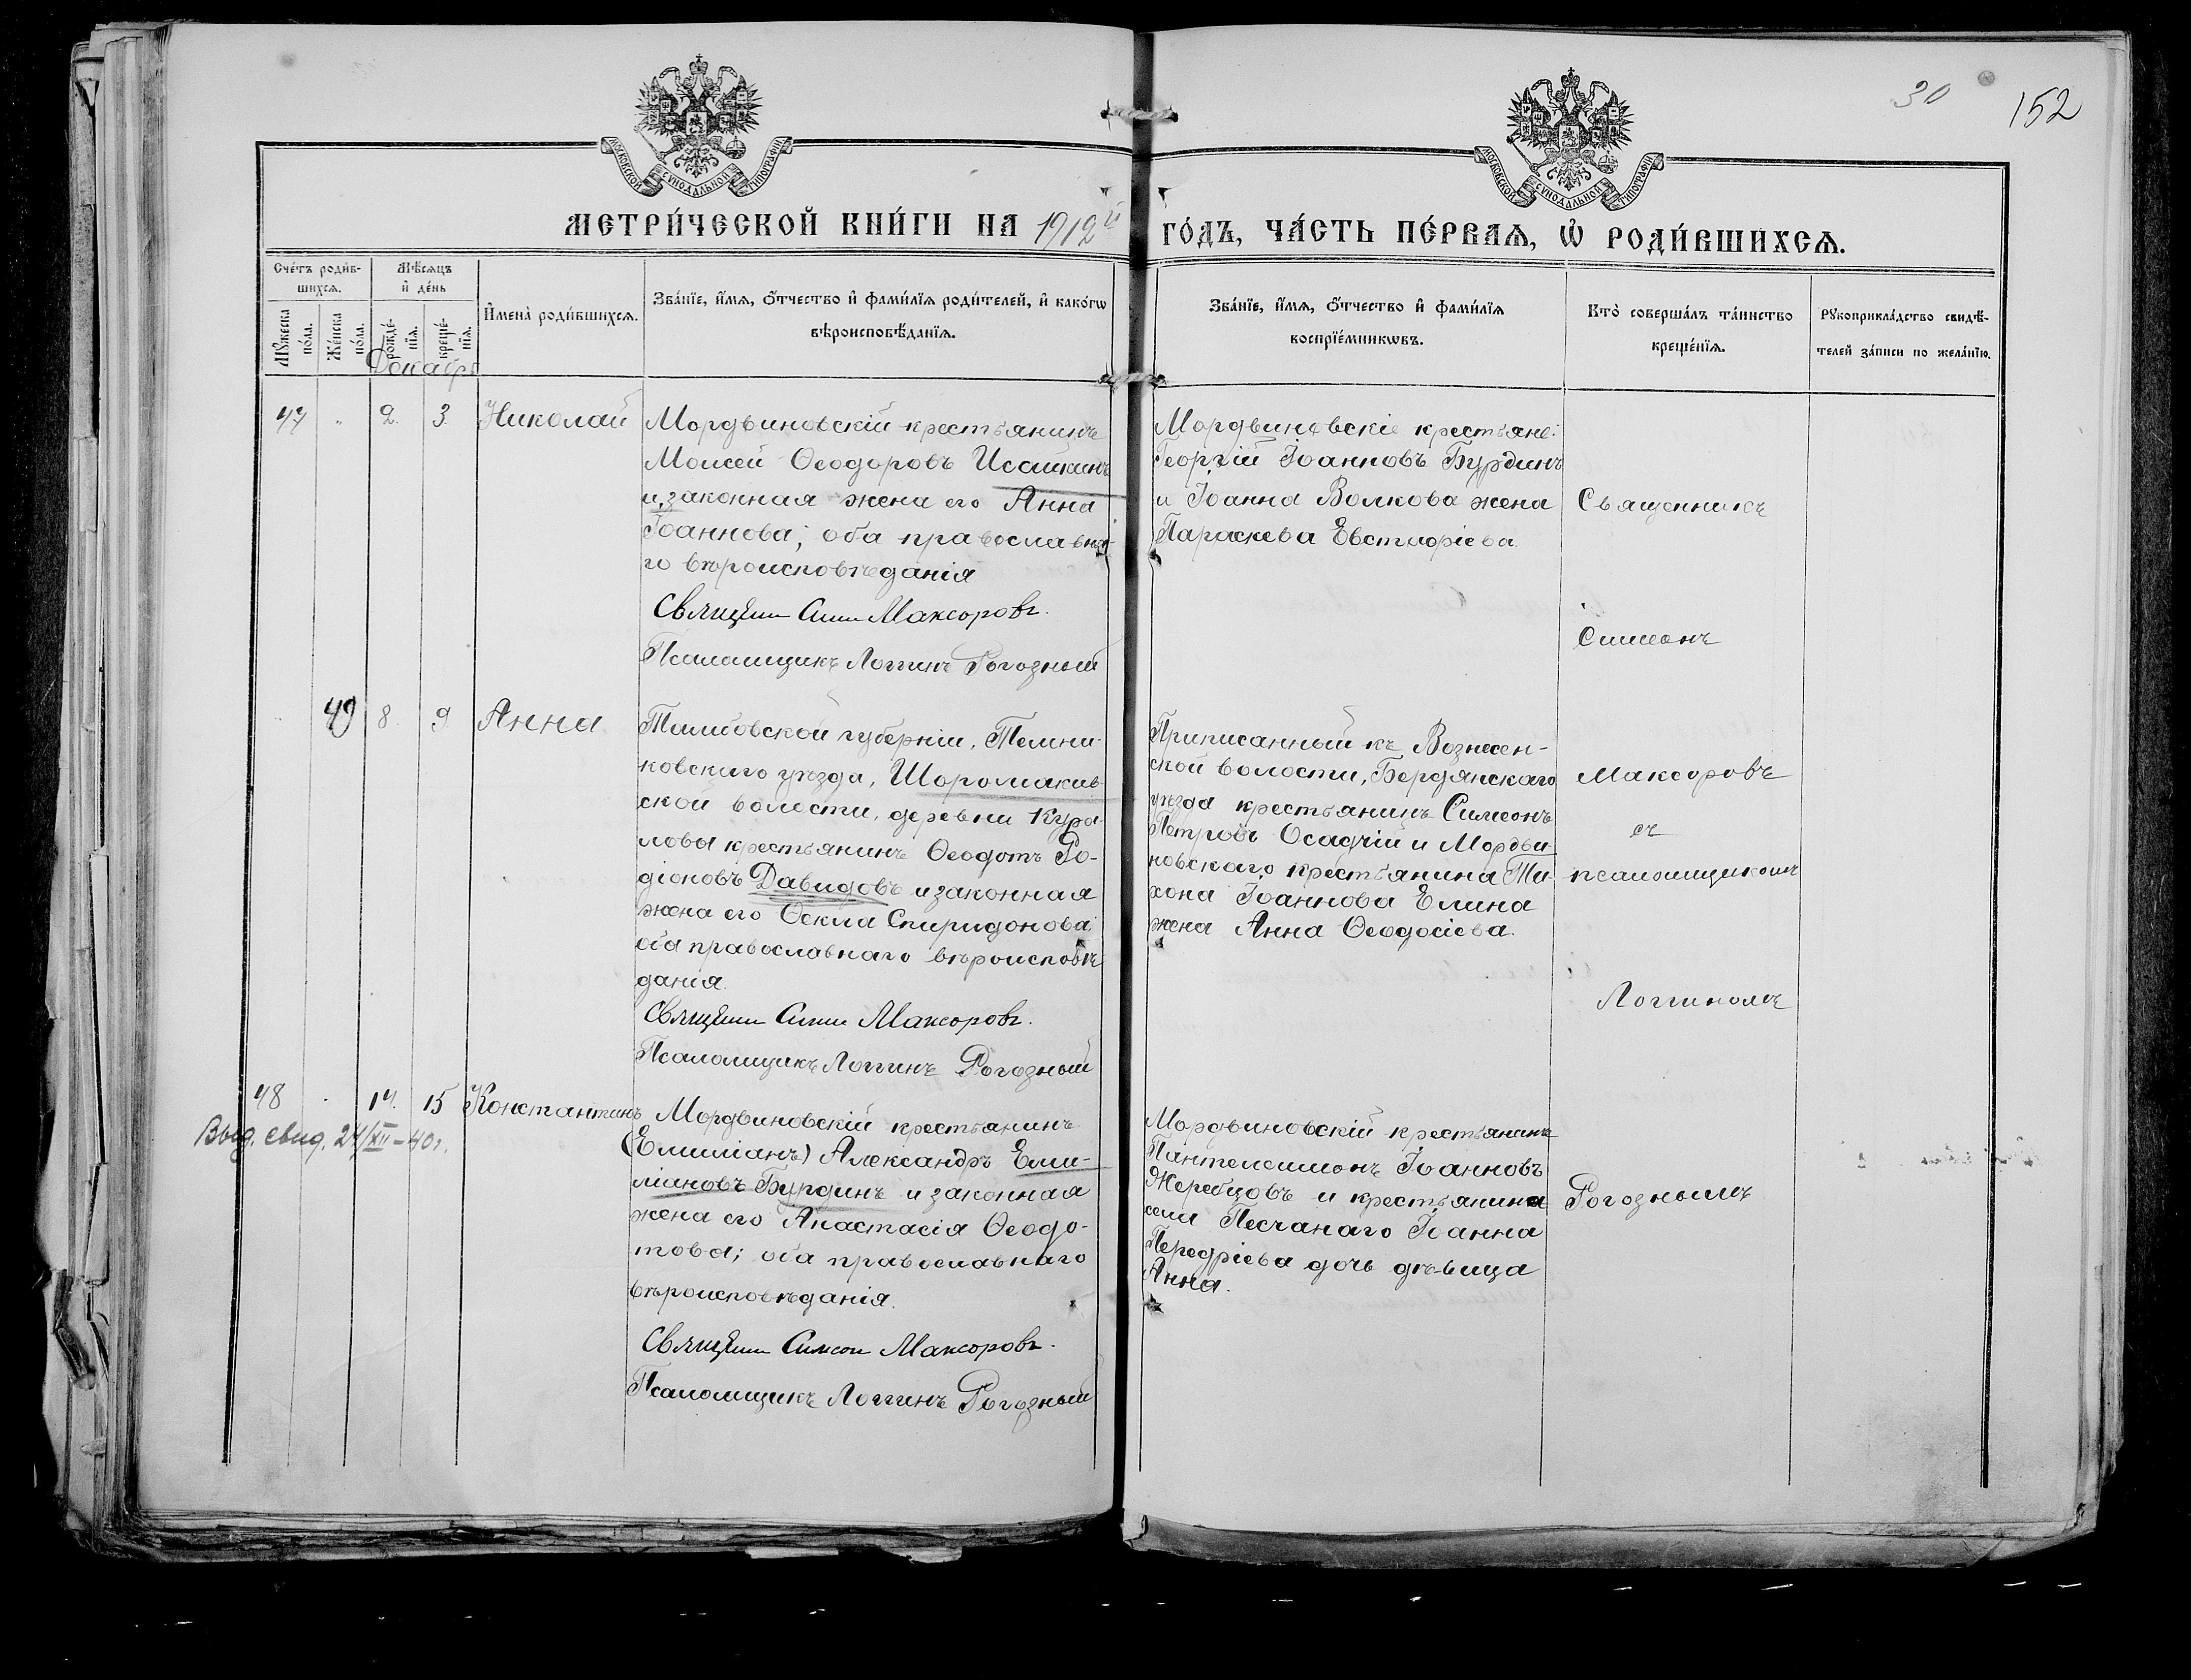 30 152
МОСКОВСКОЙ СУНОДАЛЬНОЙ ТИПОГРАФІИ
МОСКОВСКОЙ СУНОДАЛЬНОЙ ТИПОГРАФІИ
МЕТРИ́ЧЕСКОЙ КНИ́ГИ НА 1912й ГО́ДЪ, ЧА́СТЬ ПЕ́РВАѦ, Ѡ҆ РОДИ́ВШИХСѦ.
Сче́тъ роди́в-
шихсѧ.
Мꙋжеска по́ла.
Же́нска по́ла.
Мѣ́сѧцъ
и҆ де́нь
рожде́-
нїѧ.
креще́-
нїѧ.
Декабрь
И҆мена̀ роди́вшихсѧ.
Зва́нїе, и҆́мѧ, ѻ҆́тчество и҆ фами́лїѧ роди́телей, и҆ како́гѡ
вѣроисповѣ́данїѧ.
Зва́нїе, и҆́мѧ, ѻ҆́тчество и҆ фами́лїѧ
воспрїе́мникѡвъ.
Кто̀ соверша́лъ та́инство
креще́нїѧ.
Рꙋкоприкла́дство свидѣ́-
телей за́писи по жела́нїю.
47 " 2. 3. Николай
Мордвиновскій крестьянинъ
Моисей Ѳеодоровъ Исайкинъ
и законная жена его Анна
Іоаннова; оба православна-
го вѣроисповѣданія
Священ Симе Максоровъ.
Псаломщикъ Логгинъ Рогозный
Мордвиновскіе крестьяне:
Георгій Іоанновъ Бурдинъ
и Іоанна Волкова жена
Параскева Евстафіева.
49 8. 9 Анна
Тамбовской губерніи, Темни-
ковскаго уѣзда, Шоромасов-
ской волости, деревни Кура-
ловы крестьянинъ Ѳеодотъ Ро-
діоновъ Давидовъ и законная
жена его Ѳекла Спиридонова;
оба православнаго вѣроисповѣ-
данія.
Священ Симе Максоровъ.
Псаломщикъ Логгинъ Рогозный
Приписанный къ Вознесен-
ской волости, Бердянскаго
уѣзда крестьянинъ Симеонъ
Петровъ Осадчій и Мордви-
новскаго крестьянина Ти-
хона Іоаннова Елина
жена Анна Ѳеодосіева.
48 . 14. 15 Константинъ
Выд. свид. 24/XII-40г.
Мордвиновскій крестьянинъ
(Емиліанъ) Александръ Еми-
ліановъ Бурдинъ и законная
жена его Анастасія Ѳеодо-
това; оба православнаго
вѣроисповѣданія.
Священ Симеон Максоровъ.
Псаломщикъ Логгинъ Рогозный
Мордвиновскій крестьянинъ
Пантелеимонъ Іоанновъ
Жеребцовъ и крестьянина
села Песчанаго Іоанна
Передріева дочь дѣвица
Анна.
Священникъ
Симеонъ
Максоровъ
съ
псаломщикомъ
Логгиномъ
Рогознымъ